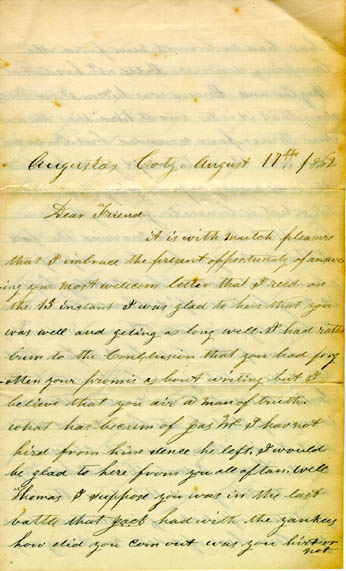 Augusta Coty August 17th 1862
Dear Friend
it is with mutch pleasure
that I embrace the present opportunity of answer
ing you most wellcom letter that I recd on
the 15 instant I was glad to hire that you
was well and geting as long well. I had rather
bum to the Conclusion that you had forg
otten your promis a bout writing but I
believe that you air a man of truth.
what has becum of Jas Mc I has not
hird from him sence he left. I would
be glad to here from you all oftan. well
Thomas I suppose you was in the last
battle that Jack had with the yankees
how did you com out was you hirt or
not